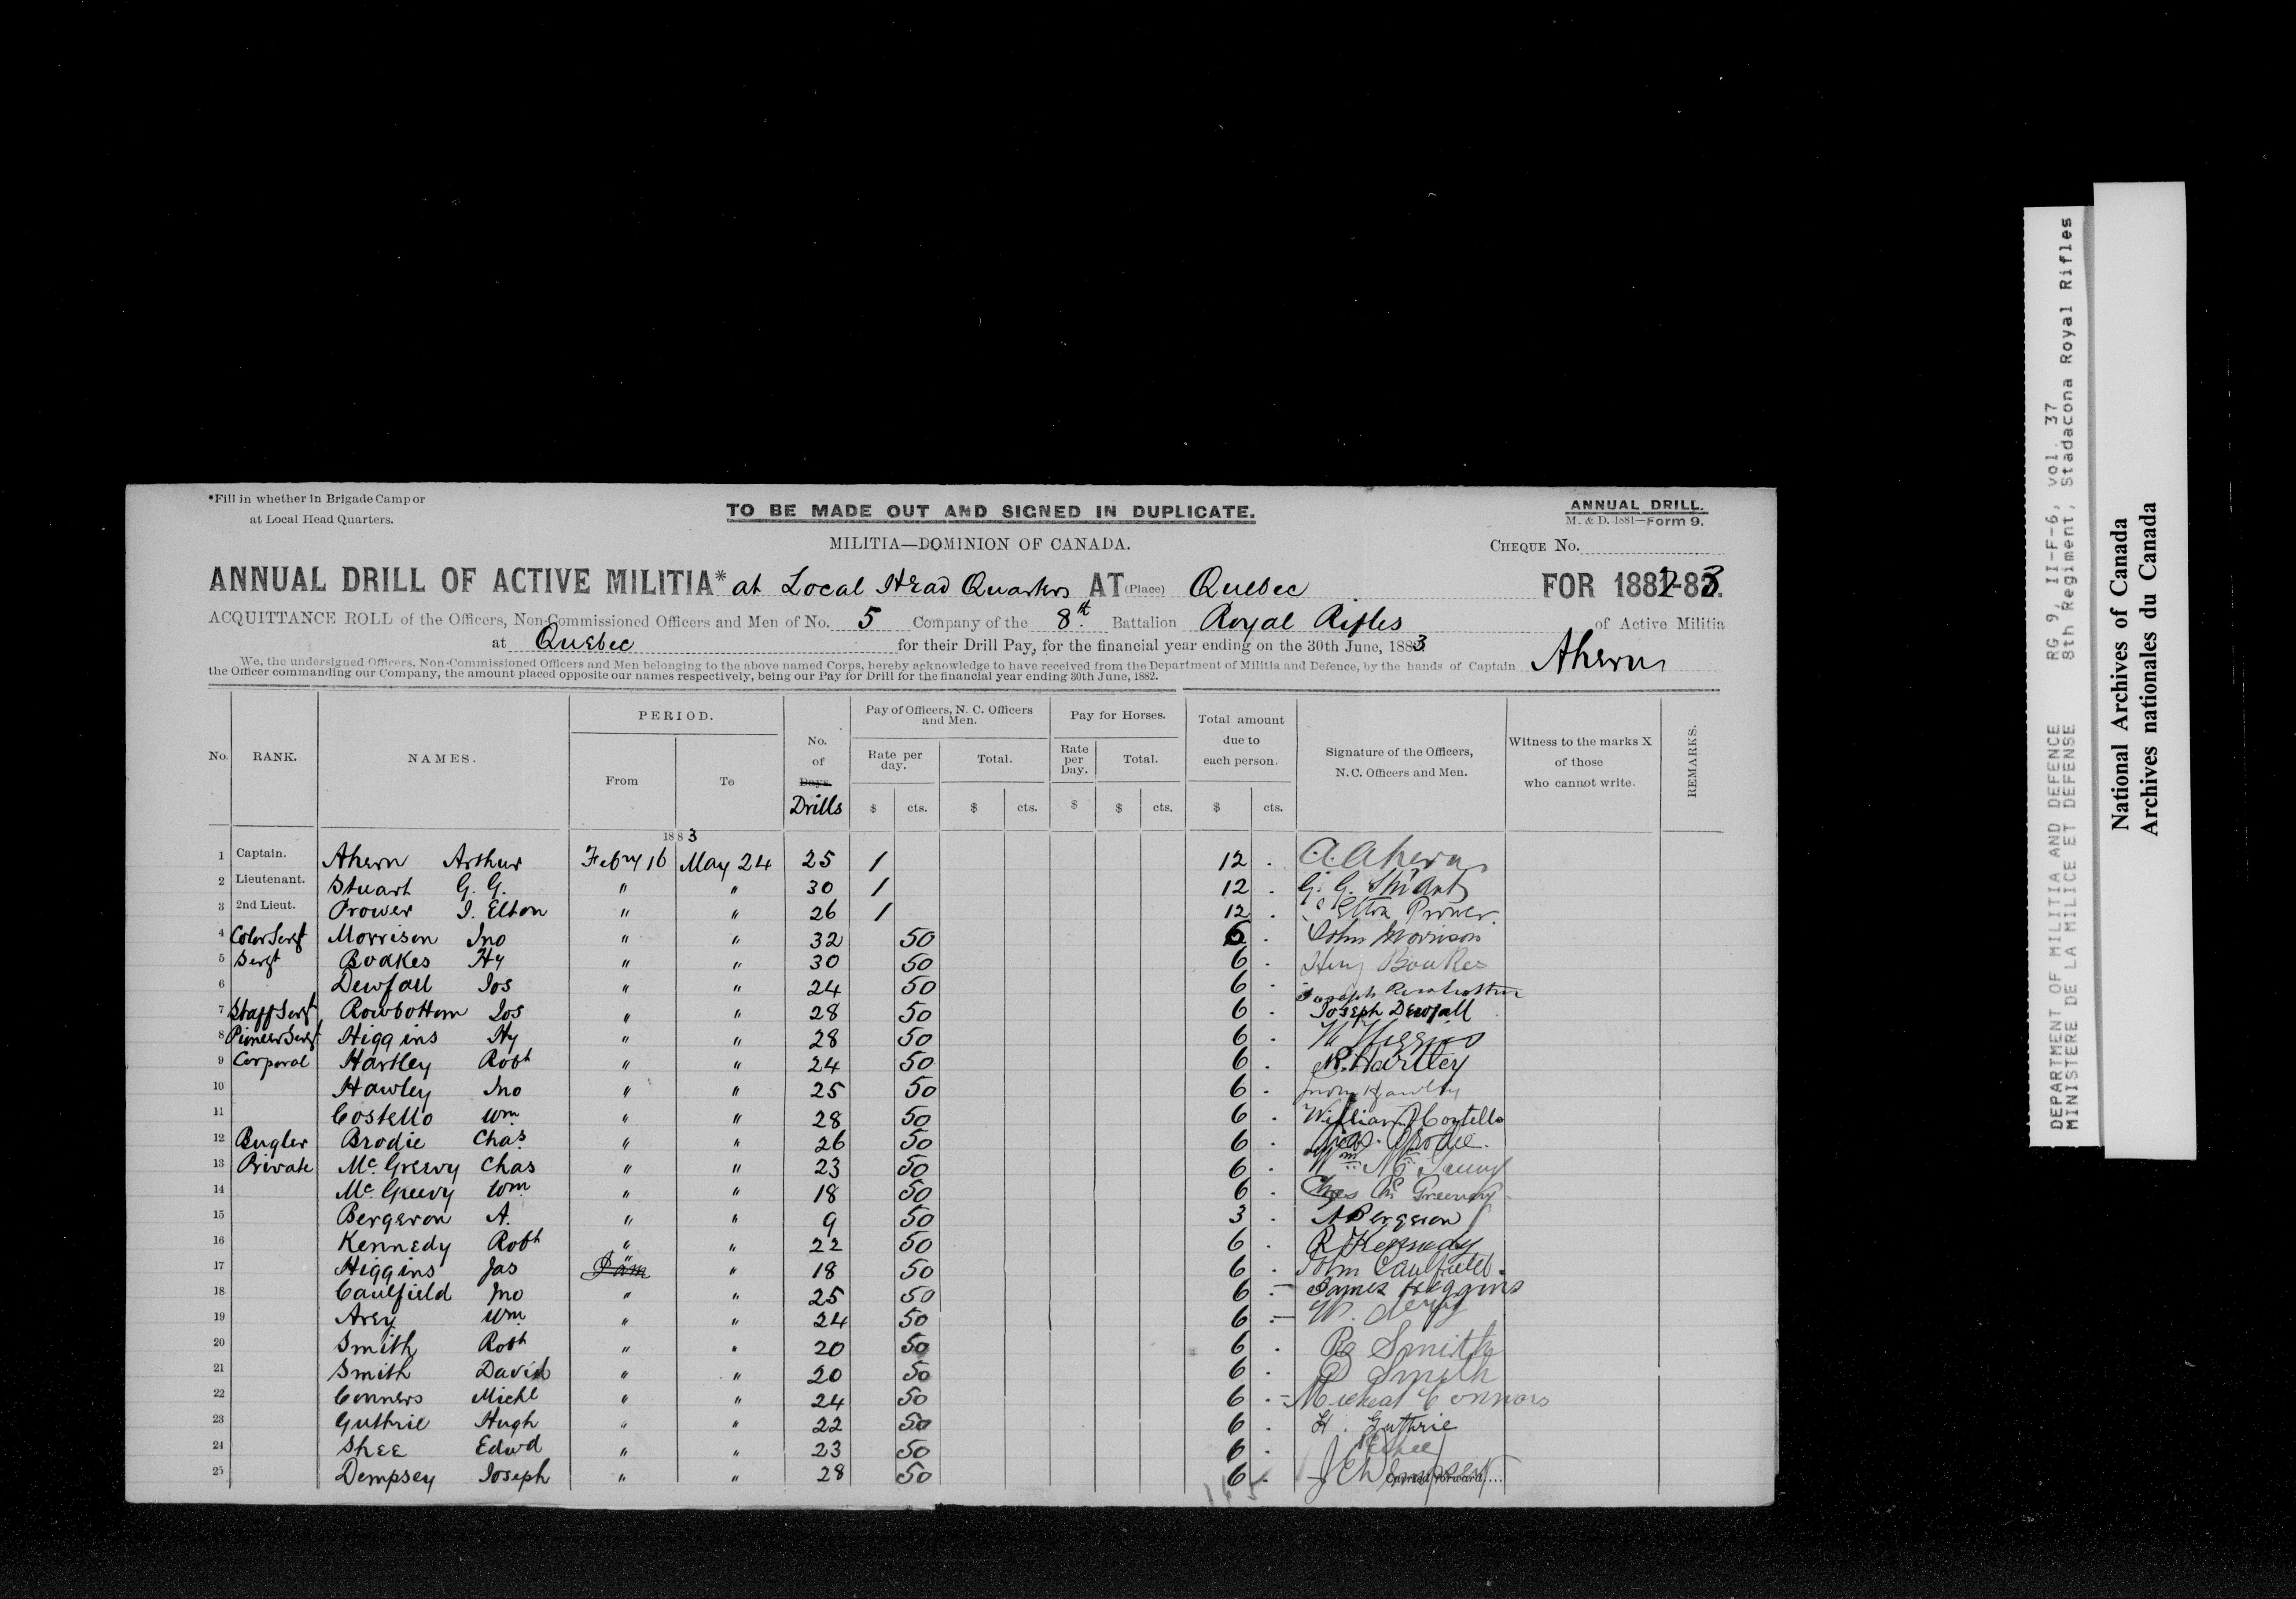 *Fill in whether in Brigade Camp or
at Local Head Quarters.
TO BE MADE OUT AND SIGNED IN DUPLICATE.
ANNUAL DRILL.
M. & D. 1881—Form 9.
MILITIA—DOMINION OF CANADA.
CHEQUE No.
ANNUAL DRILL OF ACTIVE MILITIA* at Local Head Quarters AT (Place) Quebec FOR 1882-83.
ACQUITTANCE ROLL of the Officers, Non-Commissioned Officers and Men of No. 5 Company of the 8th Battalion Royal Rifles of Active Militia
at Quebec for their Drill Pay, for the financial year ending on the 30th June, 1883
We, the undersigned Officers, Non-Commissioned Officers and Men belonging to the above named Corps, hereby acknowledge to have received from the Department of Militia and Defence, by the hands of Captain Ahern
the Officer commanding our Company, the amount placed opposite our names respectively, being our Pay for Drill for the financial year ending 30th June, 1882.
No. RANK. NAMES. PERIOD. From To No. of Days. Drills Pay of Officers, N. C. Officers and Men. Rate per day. $ cts. Total. $ cts. Pay for Horses. Rate per Day. $ Total. $ cts. Total amount due to each person. $ cts. Signature of the Officers, N.C. Officers and Men. Witness to the marks X of those who cannot write. REMARKS.
1883
1 Captain. Ahern Arthur Febry 16 May 24 25 1 12 . A. Ahern
2 Lieutenant. Stuart G. G. " " 30 1 12 . G. G. Stuart
3 2nd Lieut. Prower J. Elton " " 26 1 12 . Elton Prower.
4 Color Sergt Morrison Jno " " 32 50 6 . John Morrison
5 Sergt Boakes Hy " " 30 50 6 . Heny Boakes
6 Dewfall Jos " " 24 50 6 . Joseph Rowbottom
7 Staff Sergt Rowbottom Jos " " 28 50 6 . Joseph Dewfall
8 Pioneer Sergt Higgins Hy " " 28 50 6 . H Higgins
9 Corporal Hartley Robt " " 24 50 6 . R. Hartley
10 Hawley Jno " " 25 50 6 . John Hawley
11 Costello Wm " " 28 50 6 . William Costello
12 Bugler Brodie Chas. " " 26 50 6 . Chas. Brodie.
13 Private Mc. Greevy Chas " " 23 50 6 . Wm Mc
14 Mc. Greevy Wm " " 18 50 6 . Chas Mc Greevy
15 Bergeron A. " " 9 50 3 . A Bergeron
16 Kennedy Robt " " 22 50 6 . R Kennedy
17 Higgins Jas " " 18 50 6 . John Caulfield.
18 Caulfield Jno " " 25 50 6 . James Higgins
19 Arey Wm " " 24 50 6 . W.
20 Smith Robt " " 20 50 6 . R Smith
21 Smith David " " 20 50 6 . D Smith
22 Conners Michl " " 24 50 6 . Micheal Connors
23 Guthrie Hugh " " 22 50 6 . H. Guthrie
24 Shee Edwd " " 23 50 6 . E Shee
25 Dempsey Joseph " " 28 50 6 . J Dempsey
Carried forward....
DEPARTMENT OF MILITIA AND DEFENCE RG 9, II-F-6, vol. 37
MINISTERE DE LA MILICE ET DEFENSE 8th Regiment, Stadacona Royal Rifles
National Archives of Canada
Archives nationales du Canada